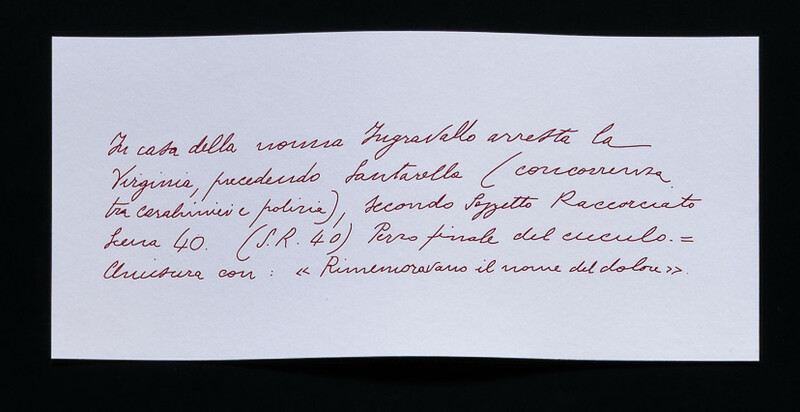 In casa della nonna Ingravallo arresta la
Virginia, precedendo Santarella (concorrenza
tra carabinieri e polizia), secondo Soggetto Raccorciato
Scena 40. (S.R. 40) Pezzo finale del cuculo. =
Chiusura con: « Rimemoravano il nome del dolore ».